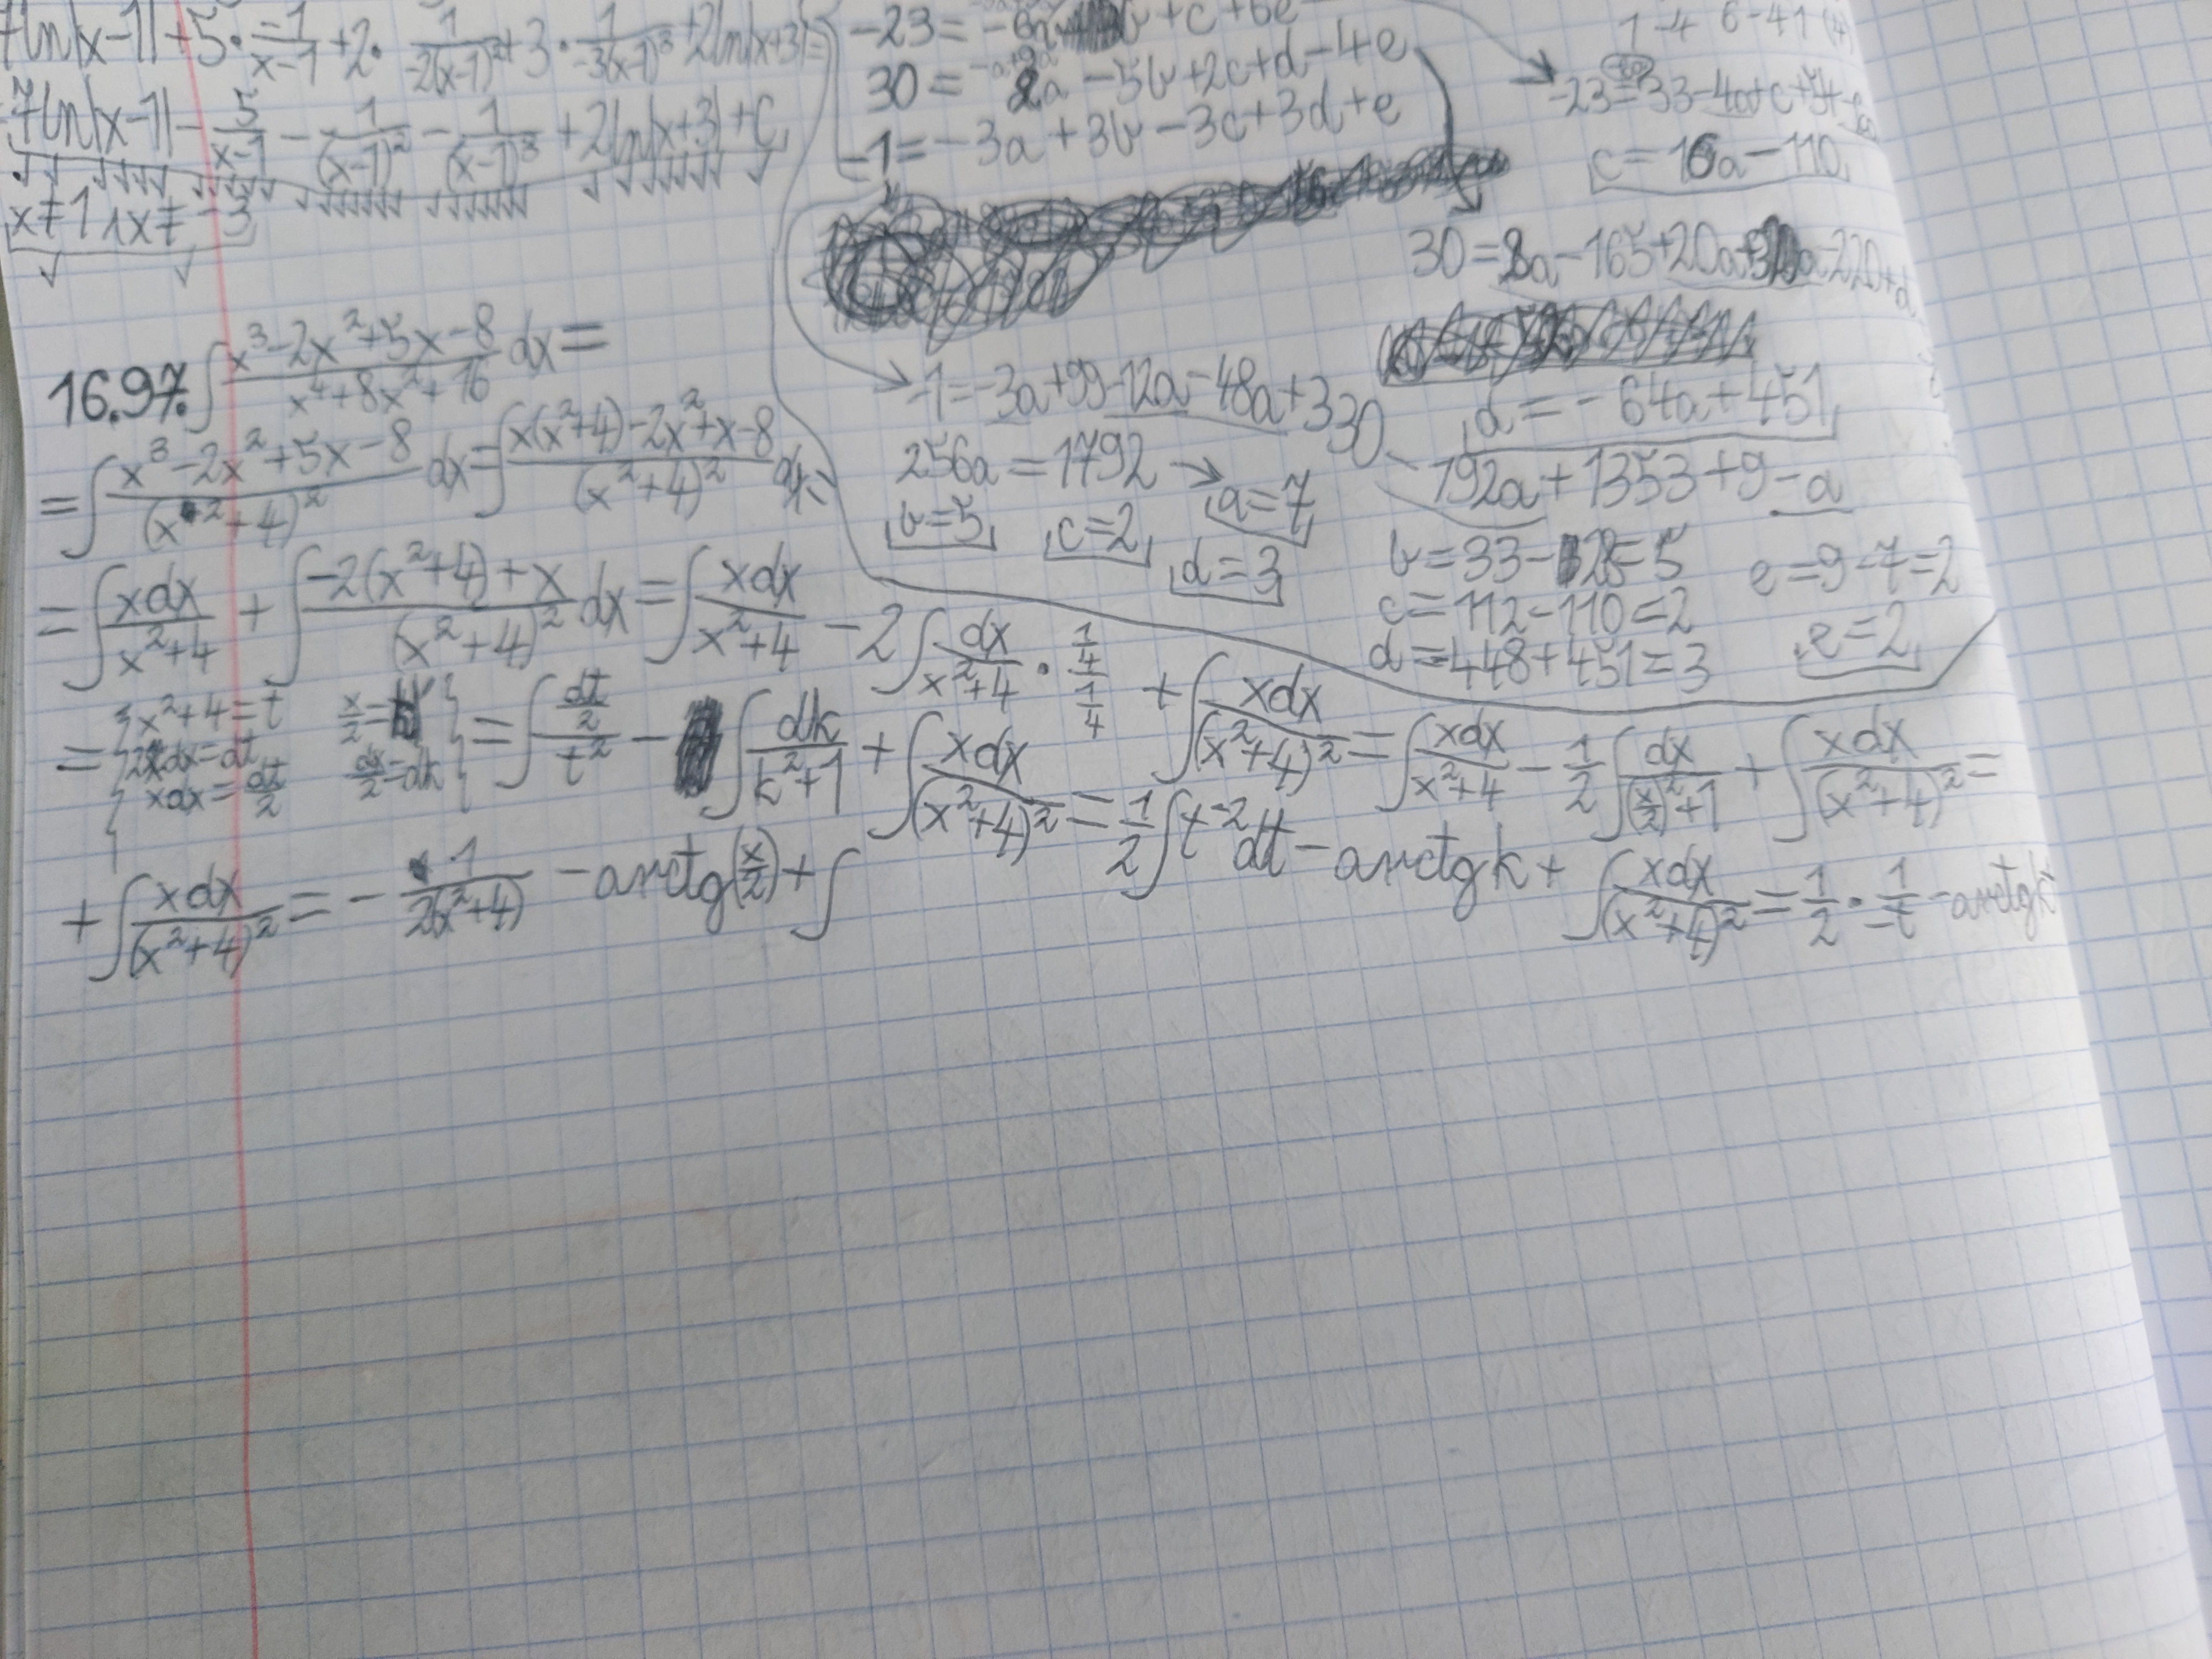 7ln|x-1|+5·\frac{-1}{x-1}+2·\frac{1}{-2(x-1)^2}+3·\frac{1}{-3(x-1)^3}+2ln|x+3|=
=7ln|x-1|-\frac{5}{x-1}-\frac{1}{(x-1)^2}-\frac{1}{(x-1)^3}+2ln|x+3|+C
x≠1∧x≠-3
+c+6e
30=8a-5b+2c+d-4e
-1=-3a+3b-3c+3d+e
c=16a-110
30=8a-165+20a+32a-220+d
d=-64a+451
-1=-3a+99-12a-48a+330
-192a+1353+9-a
256a=1792→a=7
b=5 c=2 d=3
b=33-28=5
c=112-110=2
d=-448+451=3
e=9-7=2
e=2
16.97. ∫\frac{x^3-2x^2+5x-8}{x^4+8x^2+16}dx=
=∫\frac{x^3-2x^2+5x-8}{(x^2+4)^2}dx=∫\frac{x(x^2+4)-2x^2+x-8}{(x^2+4)^2}dx=
=∫\frac{xdx}{x^2+4}+∫\frac{-2(x^2+4)+x}{(x^2+4)^2}dx=∫\frac{xdx}{x^2+4}-2∫\frac{dx}{x^2+4}·\frac{\frac{1}{4}}{\frac{1}{4}}+∫\frac{xdx}{(x^2+4)^2}=∫\frac{xdx}{x^2+4}-\frac{1}{2}∫\frac{dx}{(\frac{x}{2})^2+1}+∫\frac{xdx}{(x^2+4)^2}=
={x^2+4=t
2xdx=dt
xdx=\frac{dt}{2}
\frac{x}{2}=k
\frac{dx}{2}=dk}=∫\frac{\frac{dt}{2}}{t^2}-∫\frac{dk}{k^2+1}+∫\frac{xdx}{(x^2+4)^2}=\frac{1}{2}∫t^{-2}dt-arctgk+∫\frac{xdx}{(x^2+4)^2}=\frac{1}{2}·\frac{1}{-t}-arctgk
+∫\frac{xdx}{(x^2+4)^2}=-\frac{1}{2(x^2+4)}-arctg(\frac{x}{2})+∫